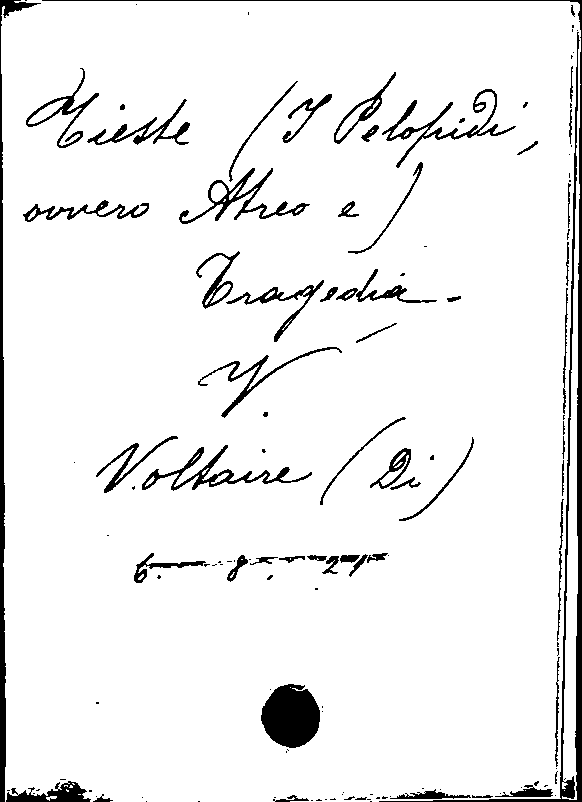 Tieste (I Pelopidi,
ovvero Atreo e)
Tragedia -
V.
Voltaire (Di)